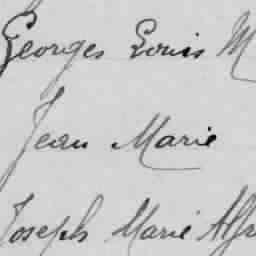 Georges Louis M
Jean Marie
Joseph Marie Alfr